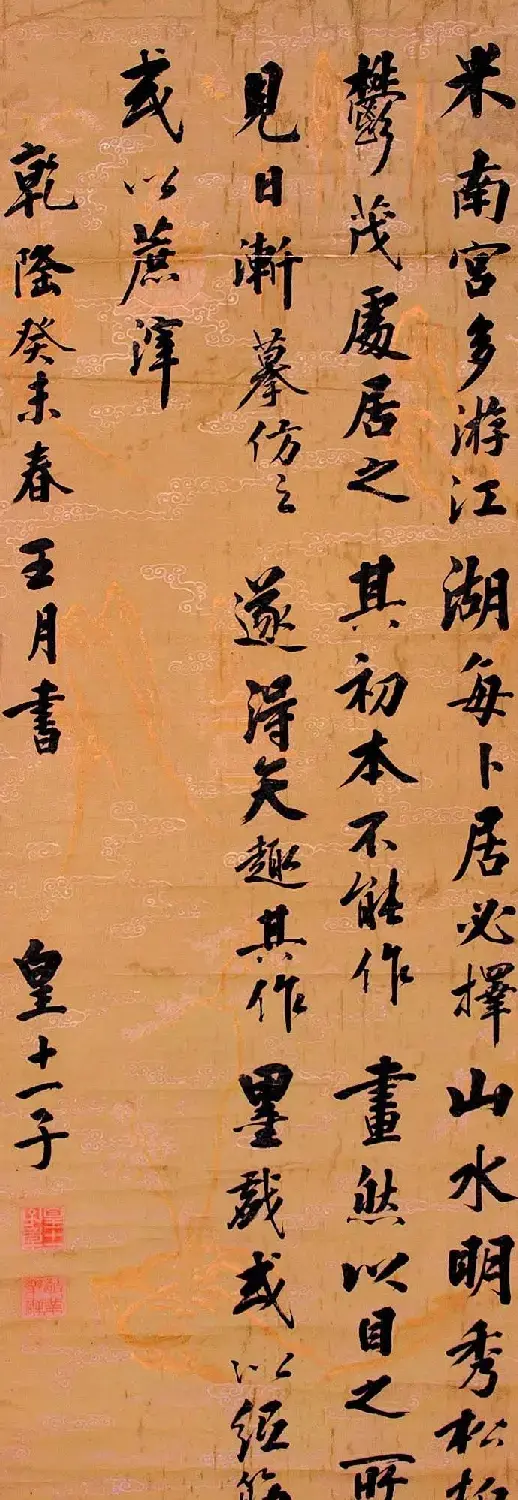 米南宮多游江湖每卜居必擇山水明秀松
鬱茂處居之其初本不能作畫然以目之所
見日漸摹仿之遂得天趣其作墨戲或以紙
或以蔗滓
乾隆癸未春王月書 皇十一子